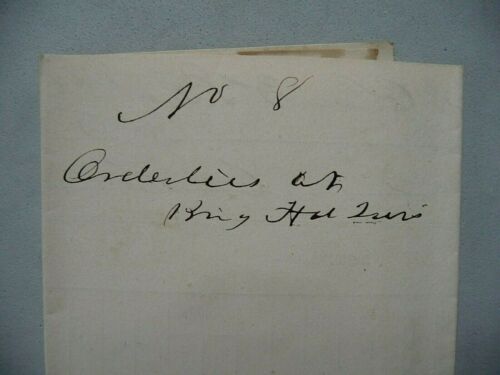 No 8
Orderlies at
Brig Hd Qurs